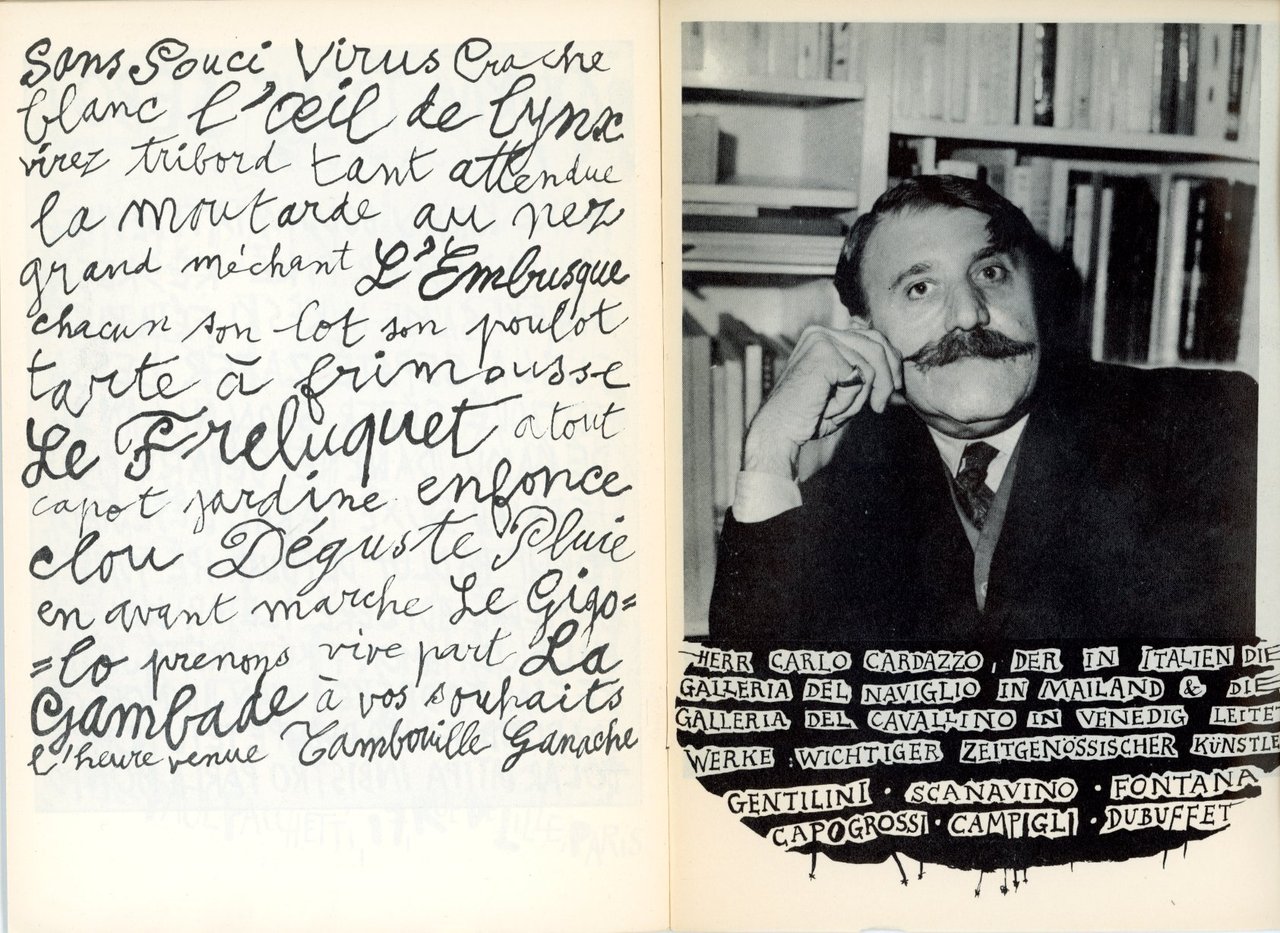 Sans Souci Virus Crache
blanc l'œil de lynx
virez tribord tant attendue
la moutarde au nez
grand méchant L'Embusque
chacun son lot son poulot
tarte à frimousse
Le Freluquet atout
capot jardine enfonce
clou Déguste Pluie
en avant marche Le Gigo=
=lo prenons vive part La
Gambade à vos souhaits
l'heure venue Tambouille Ganache
HERR CARLO CARDAZZO, DER IN ITALIEN DIE
GALLERIA DEL NAVIGLIO IN MAILAND & DIE
GALLERIA DEL CAVALLINO IN VENEDIG LEITET
WERKE WICHTIGER ZEITGENÖSSISCHER KÜNSTLE
GENTILINI · SCANAVINO · FONTANA
CAPOGROSSI · CAMPIGLI · DUBUFFET